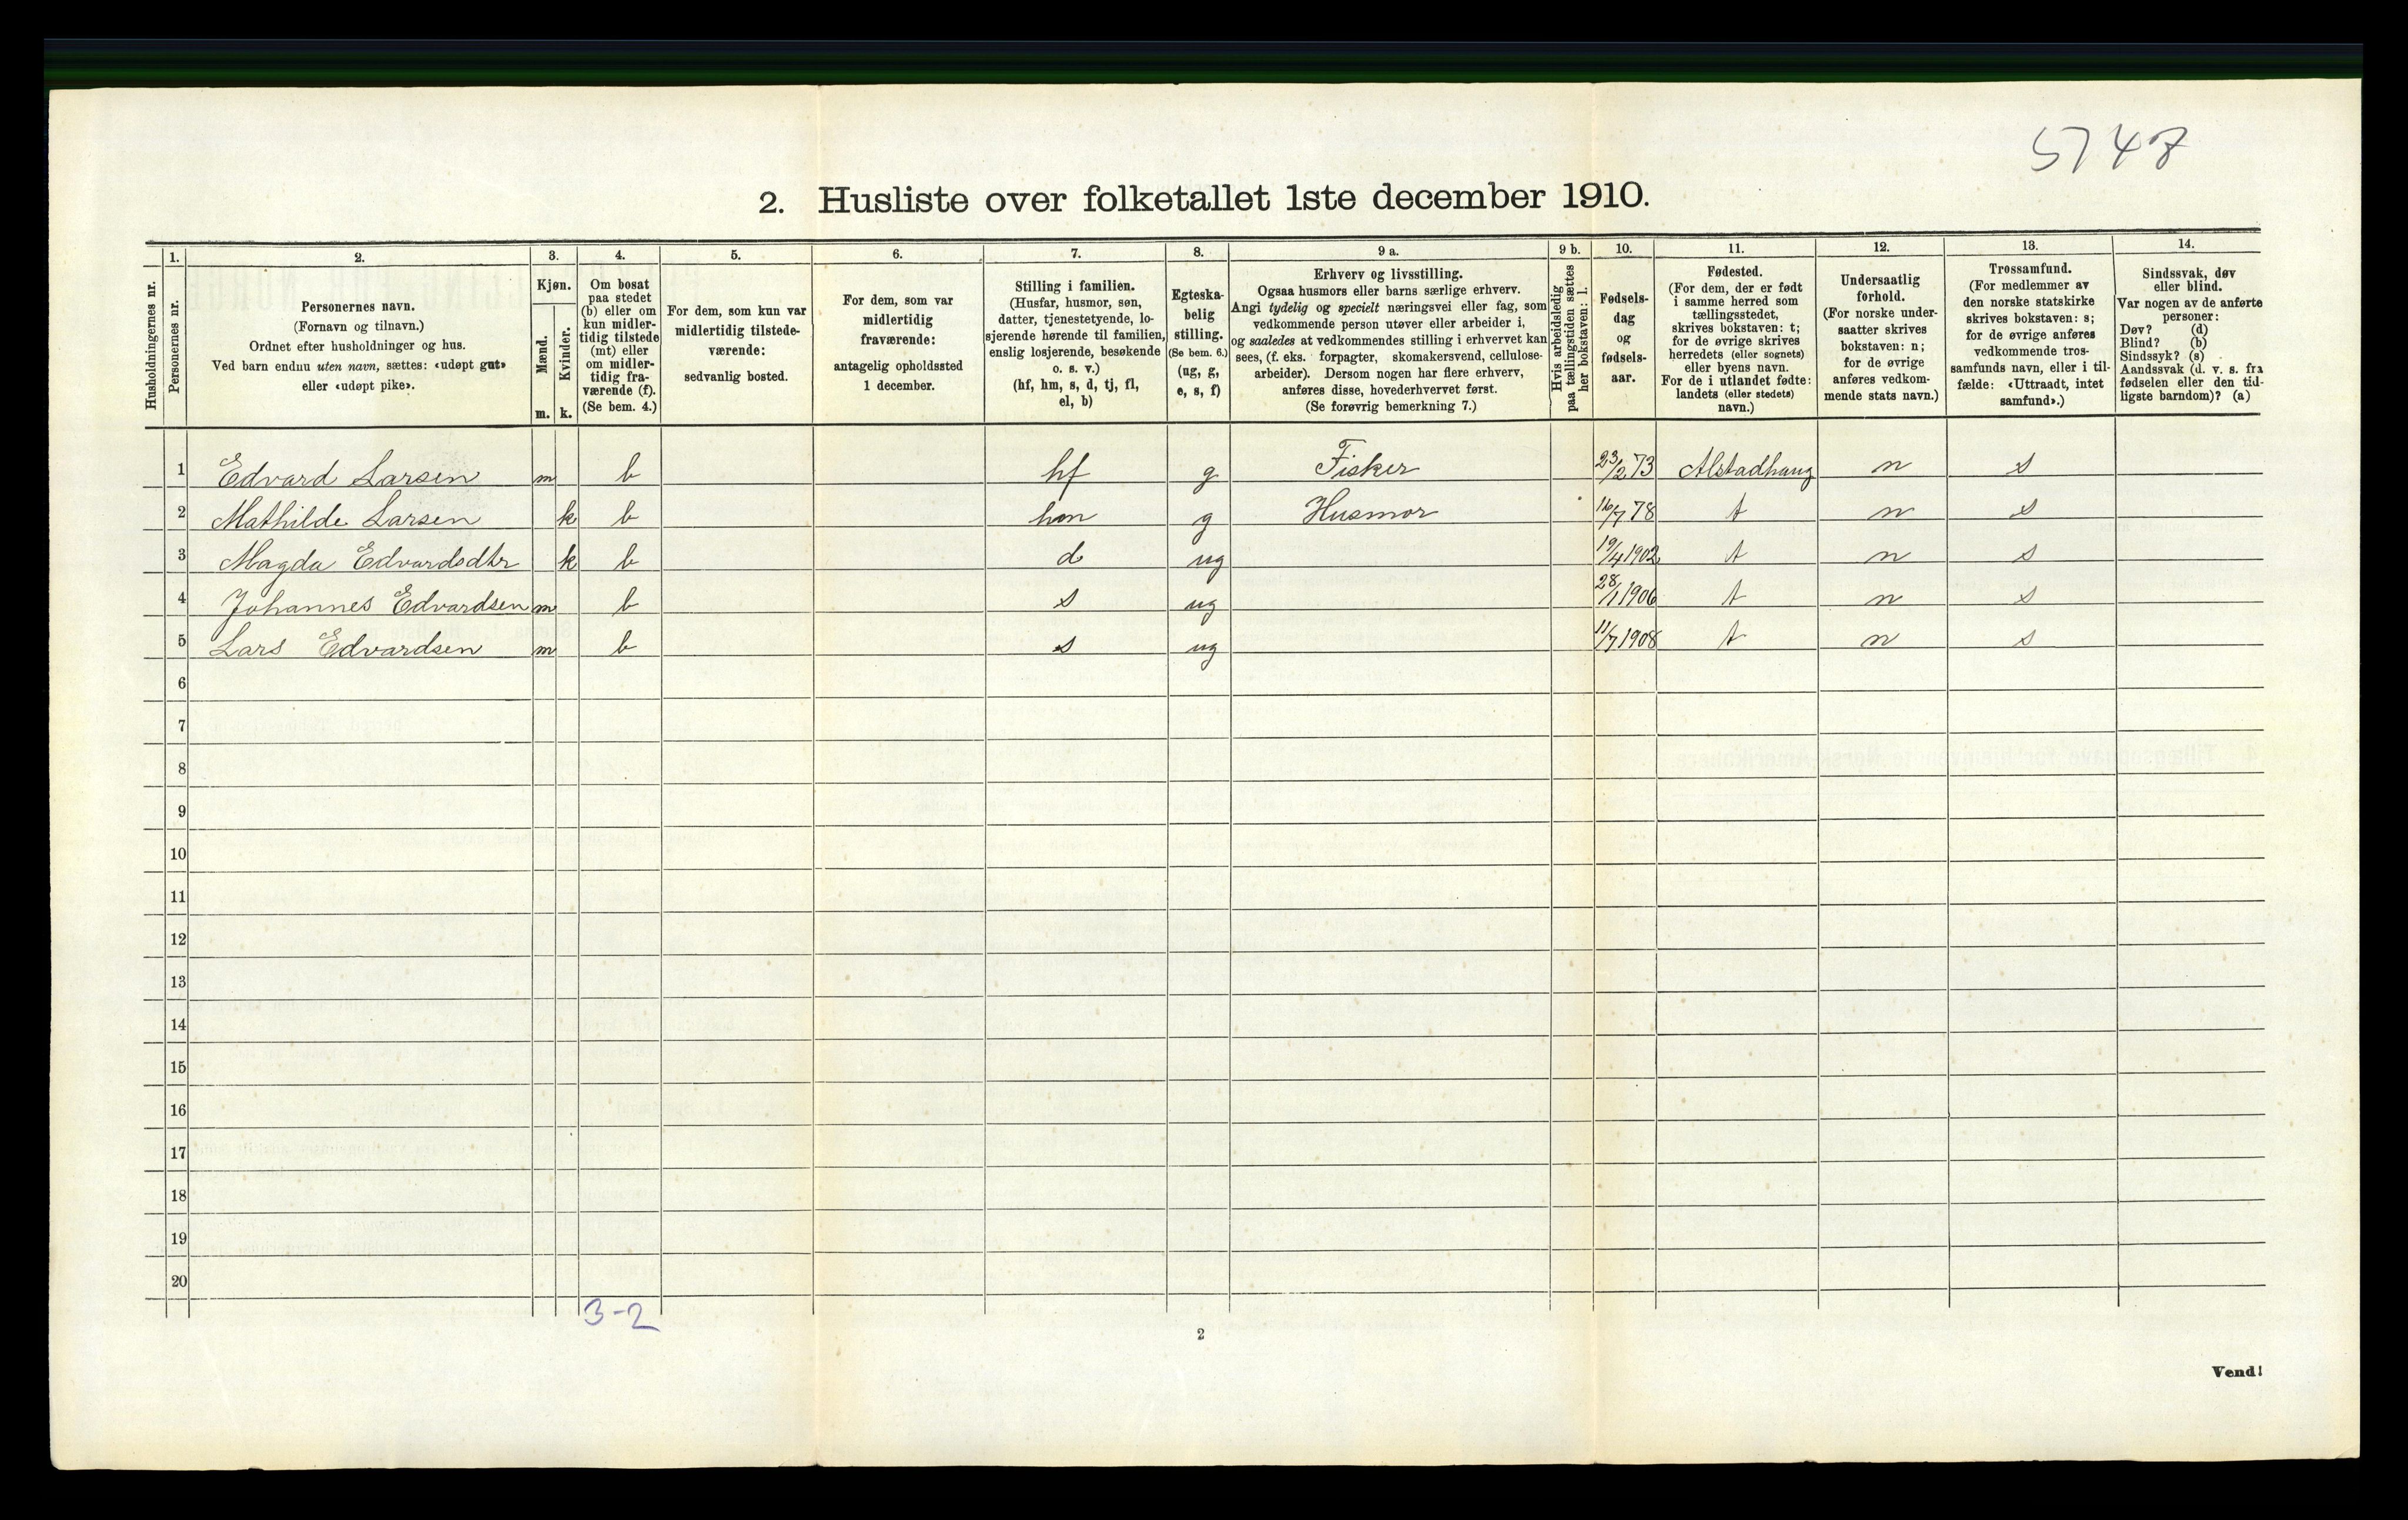 5748
2. Husliste over folketallet 1ste december 1910.
Husholdningernes nr.
1.
Personernes nr.
2.
Personernes navn.
(Fornavn og tilnavn.)
Ordnet efter husholdninger og hus.
Ved barn endnu uten navn, sættes: «udøpt gut»
eller «udøpt pike».
3.
Kjøn.
Mænd.
m.
Kvinder.
k.
4.
Om bosat
paa stedet
(b) eller om
kun midler-
tidig tilstede
(mt) eller
om midler-
tidig fra-
værende (f).
(Se bem. 4.)
5.
For dem, som kun var
midlertidig tilstede-
værende:
sedvanlig bosted.
6.
For dem, som var
midlertidig
fraværende:
antagelig opholdssted
1 december.
7.
Stilling i familien.
(Husfar, husmor, søn,
datter, tjenestetyende, lo-
sjerende hørende til familien,
enslig losjerende, besøkende
o. s. v.)
(hf, hm, s, d, tj, fl,
el, b)
8.
Egteska-
belig
stilling.
(Se bem. 6.)
(ug, g,
e, s, f)
9 a.
Erhverv og livsstilling.
Ogsaa husmors eller barns særlige erhverv.
Angi tydelig og specielt næringsvei eller fag, som
vedkommende person utøver eller arbeider i,
og saaledes at vedkommendes stilling i erhvervet kan
sees, (f. eks. forpagter, skomakersvend, cellulose-
arbeider). Dersom nogen har flere erhverv,
anføres disse, hovederhvervet først.
(Se forøvrig bemerkning 7.)
9 b.
Hvis arbeidsledig
paa tællingstiden sættes
her bokstaven: l.
10.
Fødsels-
dag
og
fødsels-
aar.
11.
Fødested.
(For dem, der er født
i samme herred som
tællingsstedet,
skrives bokstaven: t;
for de øvrige skrives
herredets (eller sognets)
eller byens navn.
For de i utlandet fødte:
landets (eller stedets)
navn.)
12.
Undersaatlig
forhold.
(For norske under-
saatter skrives
bokstaven: n;
for de øvrige
anføres vedkom-
mende stats navn.)
13.
Trossamfund.
(For medlemmer av
den norske statskirke
skrives bokstaven: s;
for de øvrige anføres
vedkommende tros-
samfunds navn, eller i til-
fælde: «Uttraadt, intet
samfund».)
14.
Sindssvak, døv
eller blind.
Var nogen av de anførte
personer:
Døv? (d)
Blind? (b)
Sindssyk? (s)
Aandssvak (d. v. s. fra
fødselen eller den tid-
ligste barndom)? (a)
1 Edvard Larsen m b hf g Fisker 23/2 73 Alstadhaug n s
2 Mathilde Larsen k b hm g Husmor 16/7 78 t n s
3 Magda Edvardsdtr k b d ug 19/4 1902 t n s
4 Johannes Edvardsen m b s ug 28/1 1906 t n s
5 Lars Edvardsen m b s ug 11/7 1908 t n s
6
7
8
9
10
11
12
13
14
15
16
17
18
19
20
3-2
2
Vend!